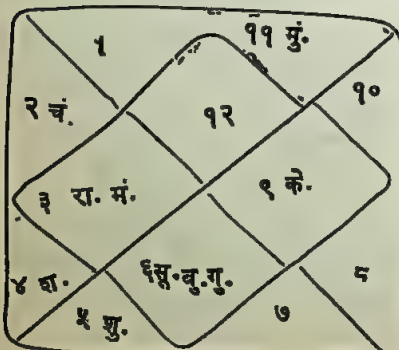 १
११ मुं.
२ चं.
१२
१०
३ रा. मं.
९ के.
४ श.
६सू.वु.गु.
८
५ शु.
७